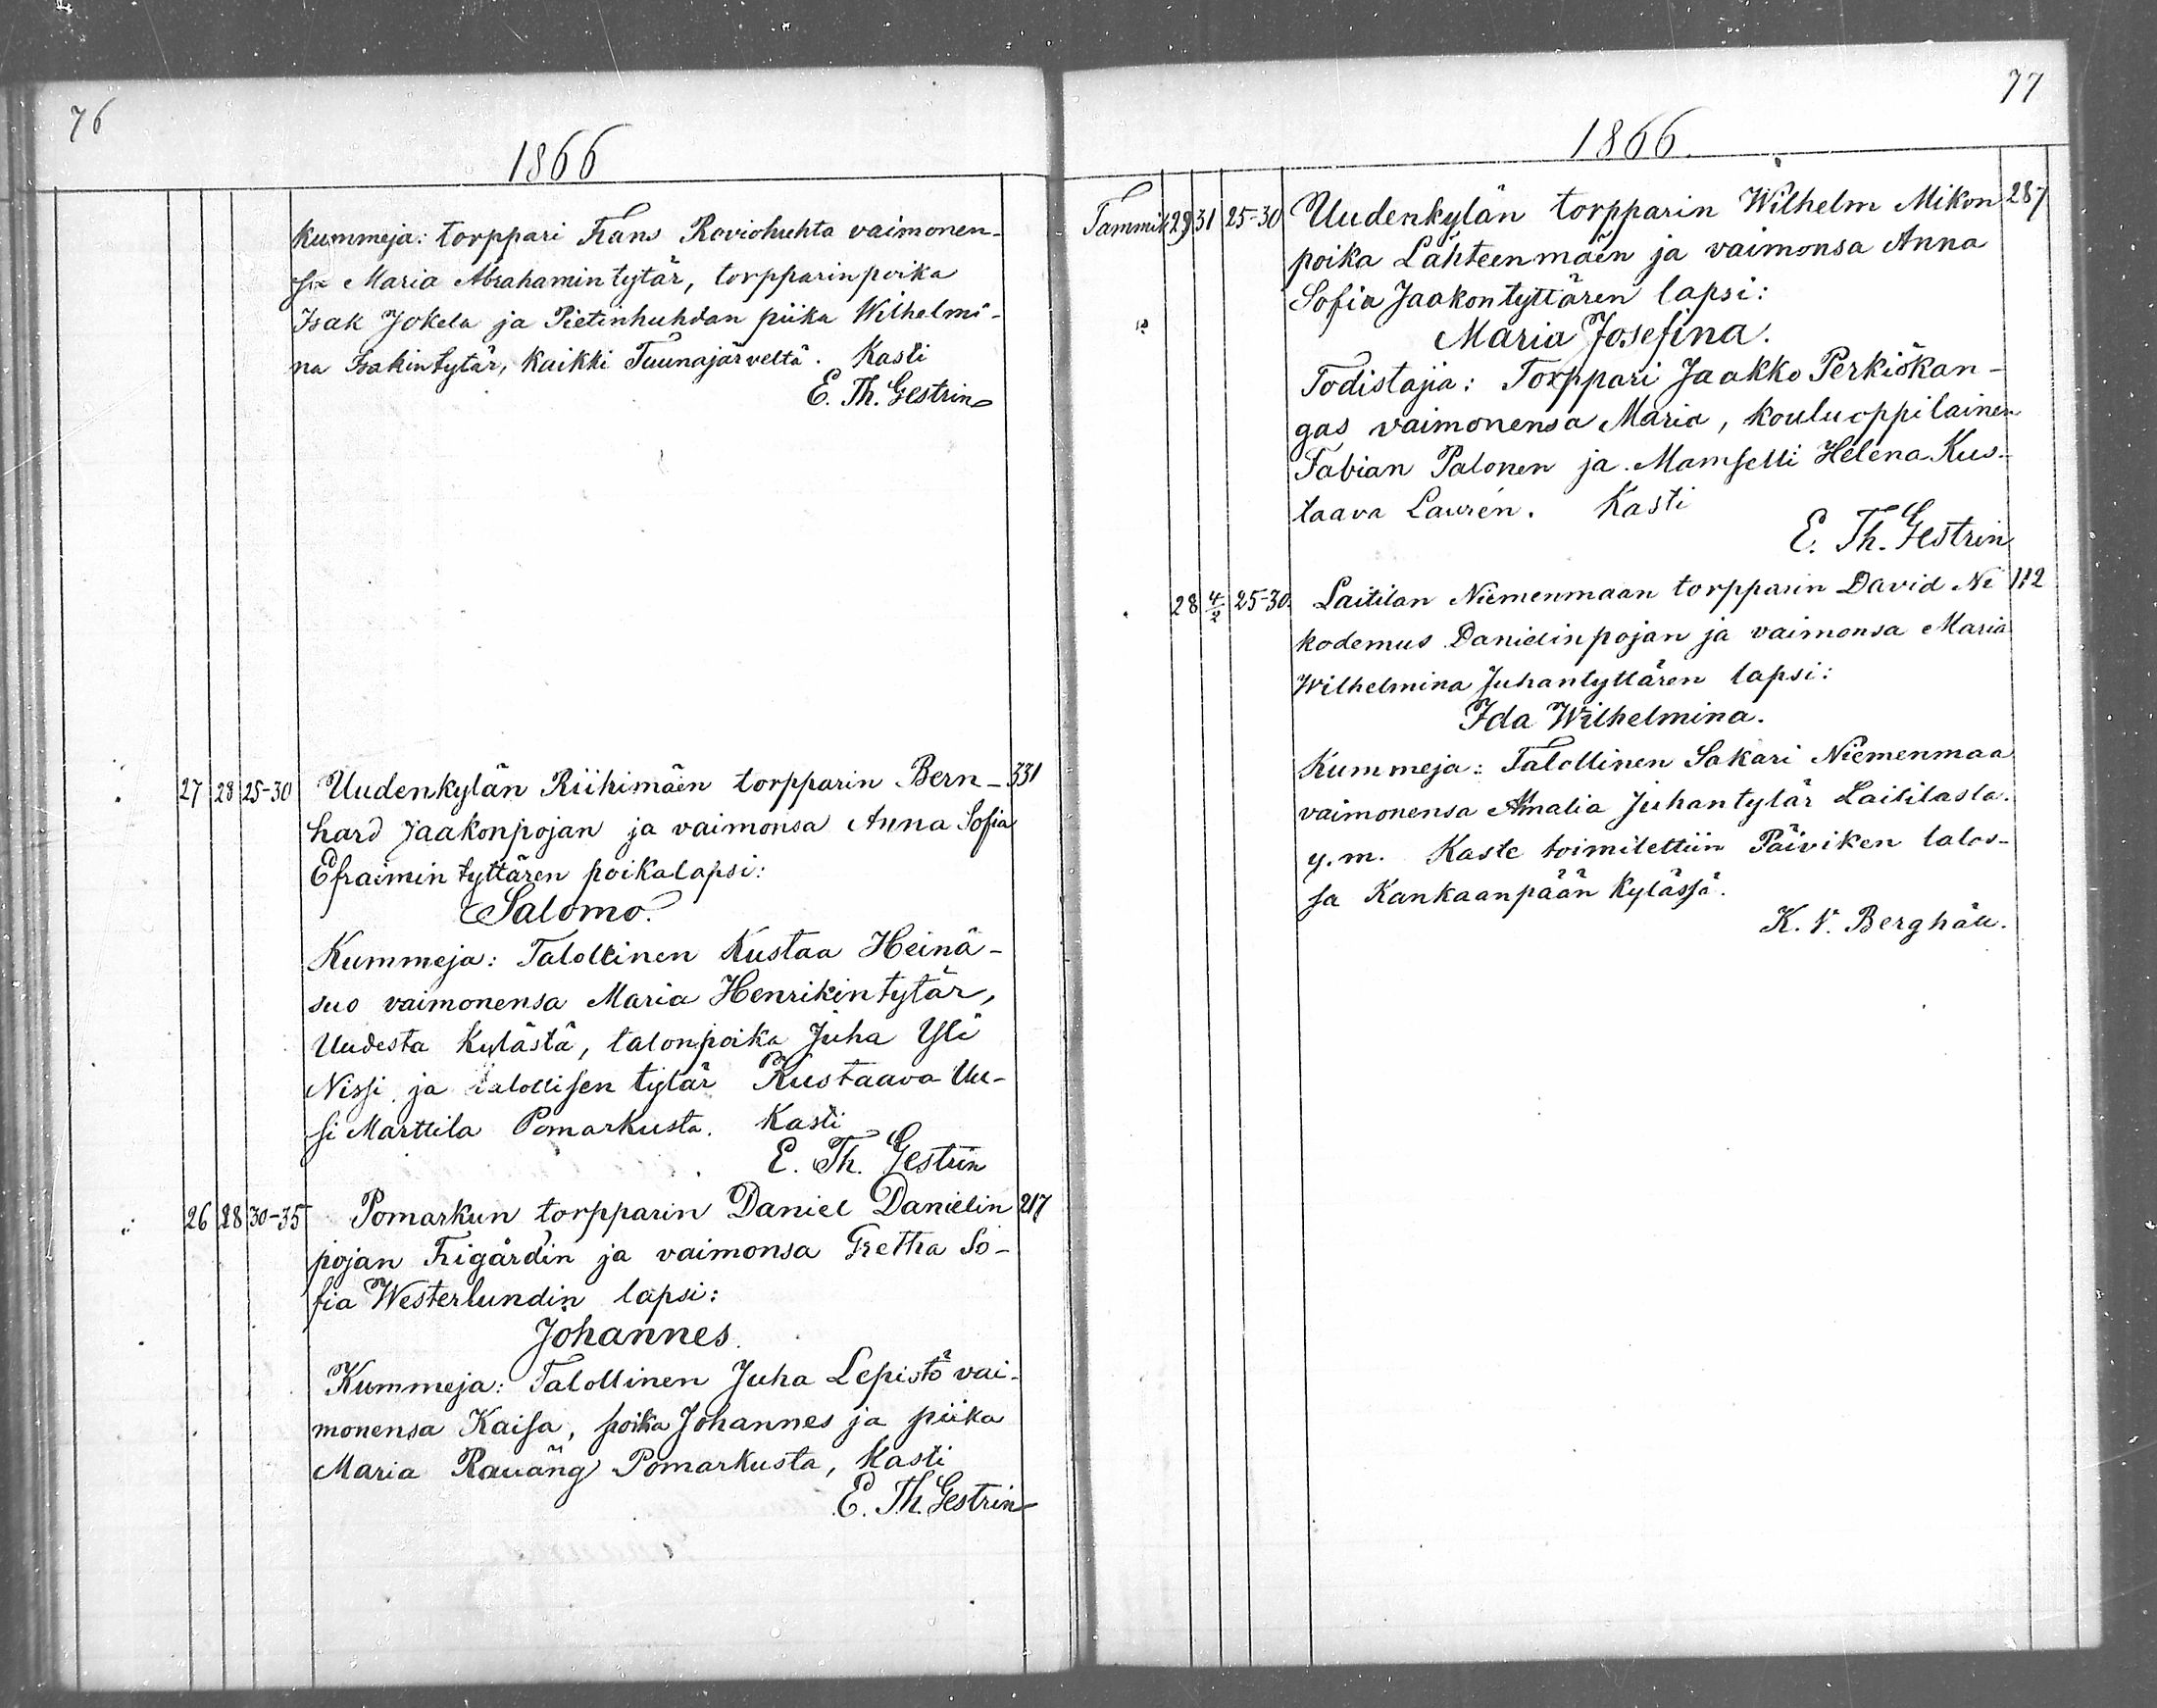 76
1866
kummeja: torppari Frans Roviohuhta vaimonen-
sa Maria Abrahamintytär, torpparinpoika
Isak Jokela ja Pietinhuhdan piika Wilhelmi-
na Isakintytär, kaikki Tuunajärveltä. Kasti
E. Th. Gestrin
27 28 25-30 Uudenkylän Riihimäen torpparin Bern- 331
hard Jaakonpojan ja vaimonsa Anna Sofia
Efraimin tyttären poikalapsi:
Salomo.
Kummeja: Talollinen Kustaa Heinä-
suo vaimonensa Maria Henrikintytär,
Uudesta kylästä, talonpoika Juha Yli
Nissi ja talollisen tytär Kustaava Uu-
si Marttila Pomarkusta. Kasti
E. Th. Gestrin
26 28 30-35 Pomarkun torpparin Daniel Danielin 217
pojan Frigårdin ja vaimonsa Gretha So-
fia Westerlundin lapsi:
Johannes.
Kummeja: Talollinen Juha Lepistö vai-
monensa Kaisa, poika Johannes ja piika
Maria Rauäng Pomarkusta, Kasti
E. Th. Gestrin
77
1866.
Tammik 29 31 25-30 Uudenkylän torpparin Wilhelm Mikon 287
poika Lähteenmäen ja vaimonsa Anna
Sofia Jaakontyttären lapsi:
Maria Josefina.
Todistajia: Torppari Jaakko Perkiökan-
gas vaimonensa Maria, kouluoppilainen
Fabian Palonen ja Mamselli Helena Kus-
taava Laurén. Kasti
E. Th. Gestrin
28 4/2 25-30. Laitilan Niemenmaan torpparin David Ni 112
kodemus Danielinpojan ja vaimonsa Maria
Wilhelmina Juhantyttären lapsi:
Ida Wilhelmina.
Kummeja: Talollinen Sakari Niemenmaa
vaimonensa Amalia Juhantytär Laitilasta.
y.m. Kaste toimitettiin Päiviken talos-
sa Kankaanpään kylässä.
K. V. Berghäll.